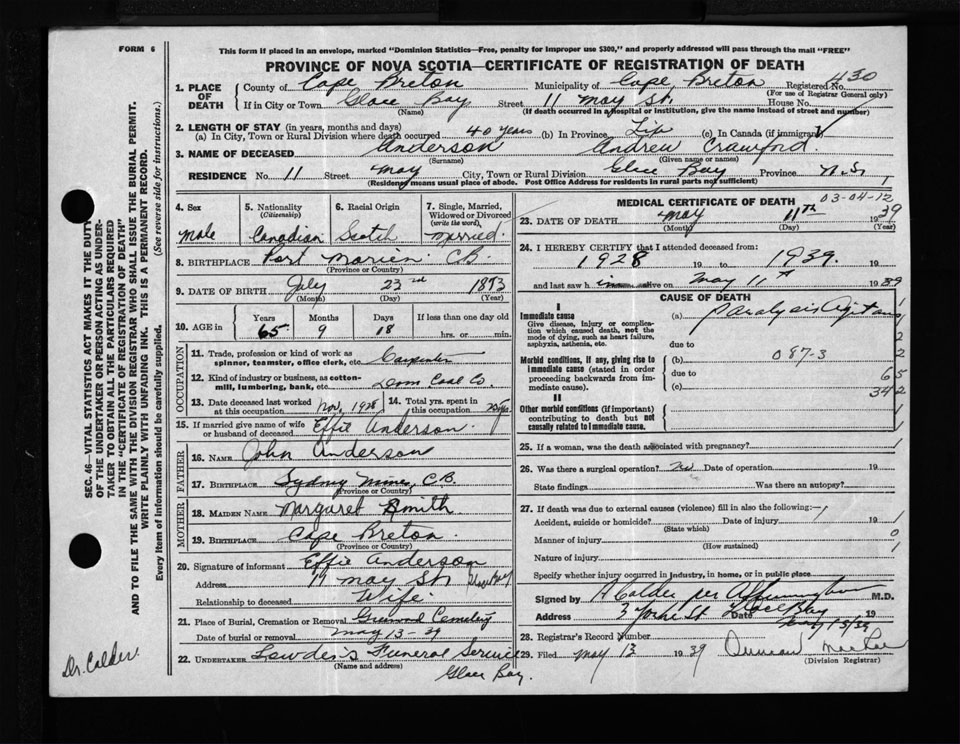 FORM 6
This form if placed in an envelope, marked "Dominion Statistics—Free, penalty for improper use $300," and properly addressed will pass through the mail "FREE"
PROVINCE OF NOVA SCOTIA—CERTIFICATE OF REGISTRATION OF DEATH
1. PLACE OF DEATH
County of Cape Breton Municipality of Cape Breton Registered No. 430
(For use of Registrar General only)
If in City or Town Glace Bay Street 11 May St. House No.
(Name) (If death occurred in a hospital or institution, give the name instead of street and number)
2. LENGTH OF STAY (in years, months and days)
(a) In City, Town or Rural Division where death occurred 40 years (b) In Province Life (c) In Canada (if immigrant)
3. NAME OF DECEASED Anderson Andrew Crawford.
(Surname) (Given name or names)
RESIDENCE No. 11 Street May City, Town or Rural Division Glace Bay Province N.S.
(Residence means usual place of abode. Post Office Address for residents in rural parts not sufficient)
4. Sex
Male
5. Nationality
(Citizenship)
Canadian
6. Racial Origin
Scotch
7. Single, Married, Widowed or Divorced
(write the word)
Married.
8. BIRTHPLACE Port Morien C.B.
(Province or Country)
9. DATE OF BIRTH July 23rd 1873
(Month) (Day) (Year)
10. AGE in
Years Months Days If less than one day old
65 9 18 hrs. or min.
OCCUPATION
11. Trade, profession or kind of work as spinner, teamster, office clerk, etc. Carpenter
12. Kind of industry or business, as cotton-mill, lumbering, bank, etc. Dom Coal Co.
13. Date deceased last worked at this occupation Nov, 1928
14. Total yrs. spent in this occupation
15. If married give name of wife or husband of deceased Effie Anderson.
FATHER
16. NAME John Anderson
17. BIRTHPLACE Sydney Mines, C.B.
(Province or Country)
MOTHER
18. MAIDEN NAME Margaret Smith
19. BIRTHPLACE Cape Breton.
(Province or Country)
20. Signature of informant Effie Anderson
Address 11 May St. Glace Bay
Relationship to deceased Wife.
21. Place of Burial, Cremation or Removal Greenwood Cemetery
Date of burial or removal May 13-39
22. UNDERTAKER Lowden's Funeral Service
(Name and address)
Glace Bay.
MEDICAL CERTIFICATE OF DEATH
03-04-12
23. DATE OF DEATH May 11th 1939
(Month) (Day) (Year)
24. I HEREBY CERTIFY that I attended deceased from:
1928 19 to 1939. 19
and last saw him alive on May 11th 1939
CAUSE OF DEATH
I
Immediate cause
Give disease, injury or complication which caused death, not the mode of dying, such as heart failure, asphyxia, asthenia, etc.
(a) Paralysis Agitans
due to
Morbid conditions, if any, giving rise to immediate cause (stated in order proceeding backwards from immediate cause).
(b) 087-3
due to
(c)
1
2
2
65
342
II
Other morbid conditions (if important) contributing to death but not causally related to immediate cause.
1
1
25. If a woman, was the death associated with pregnancy? 1
26. Was there a surgical operation? no Date of operation 19
State findings Was there an autopsy?
27. If death was due to external causes (violence) fill in also the following:- 1
Accident, suicide or homicide? Date of injury 19 1
(State which)
Manner of injury 0
(How sustained)
Nature of injury 1
Specify whether injury occurred in industry, in home, or in public place
Signed by A Calder per M.D.
Address 3 Yorke St Glace Bay Date May 13/39 19
28. Registrar's Record Number
29. Filed May 13 1939 Duncan MacRae
(Division Registrar)
SEC. 46—VITAL STATISTICS ACT MAKES IT THE DUTY OF THE UNDERTAKER OR PERSON ACTING AS UNDERTAKER TO OBTAIN ALL THE PARTICULARS REQUIRED IN THE "CERTIFICATE OF REGISTRATION OF DEATH" AND TO FILE THE SAME WITH THE DIVISION REGISTRAR WHO SHALL ISSUE THE BURIAL PERMIT.
WRITE PLAINLY WITH UNFADING INK. THIS IS A PERMANENT RECORD.
Every item of information should be carefully supplied. (See reverse side for instructions.)
Dr. Calder.